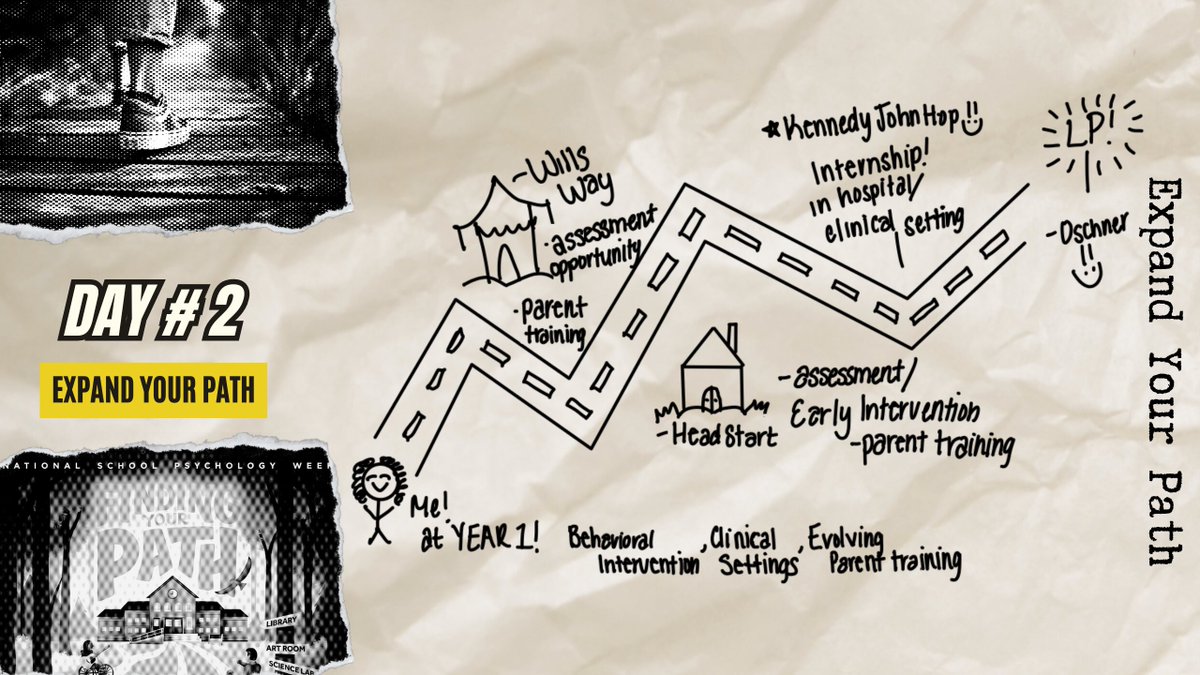 DAY # 2
EXPAND YOUR PATH
NATIONAL SCHOOL PSYCHOLOGY WEEK
FINDING
YOUR
PATH
LIBRARY
ART ROOM
SCIENCE LAB
-Wills
Way
·assessment
opportunity
·parent
training
★Kennedy John Hop
Internship!
in hospital/
clinical setting
LP!
-Oschner
-Head Start
-assessment/
Early Intervention
-parent training
Me!
at YEAR 1!
Behavioral
Intervention
,Clinical
Settings
,Evolving
Parent training
Expand Your Path